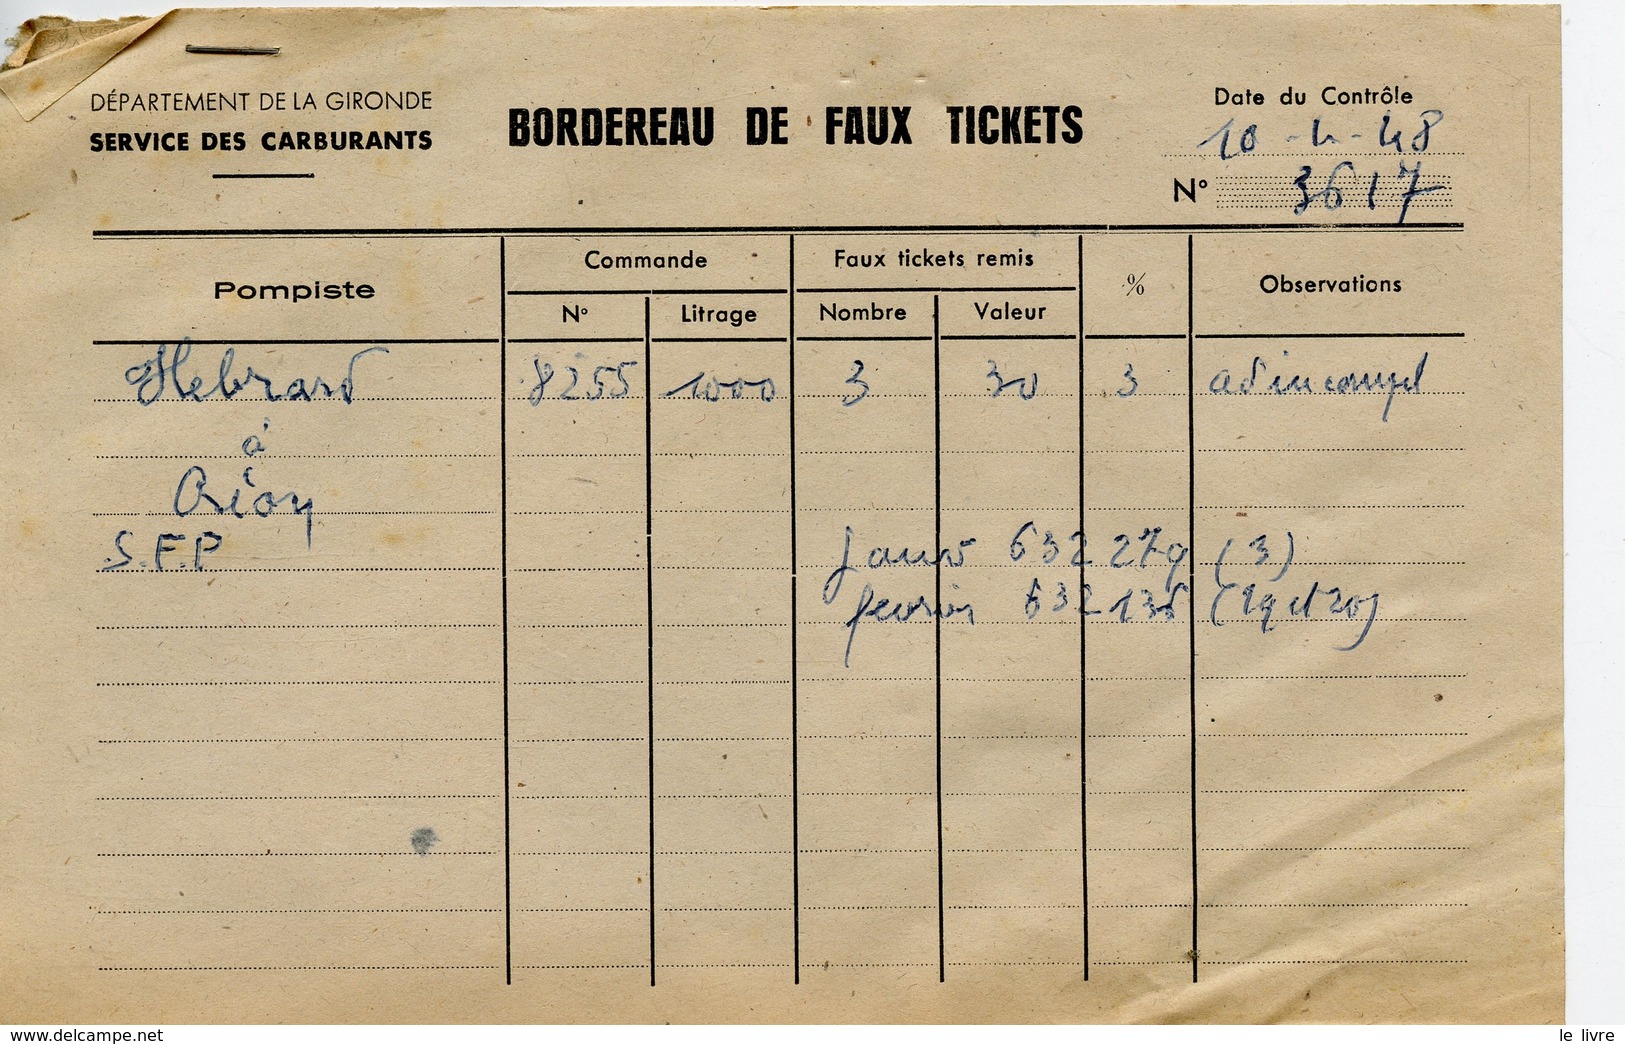 DÉPARTEMENT DE LA GIRONDE
SERVICE DES CARBURANTS
BORDEREAU DE FAUX TICKETS
Date du Contrôle
10 - 4 - 48
N° 3617
Pompiste
Commande
Faux tickets remis
%
Observations
N°
Litrage
Nombre
Valeur
Hebrard 8255 1000 3 30 3
à
S.F.P janv 632 279 (3)
fevrier 632 136 (19 et 20)
www.delcampe.net
le livre